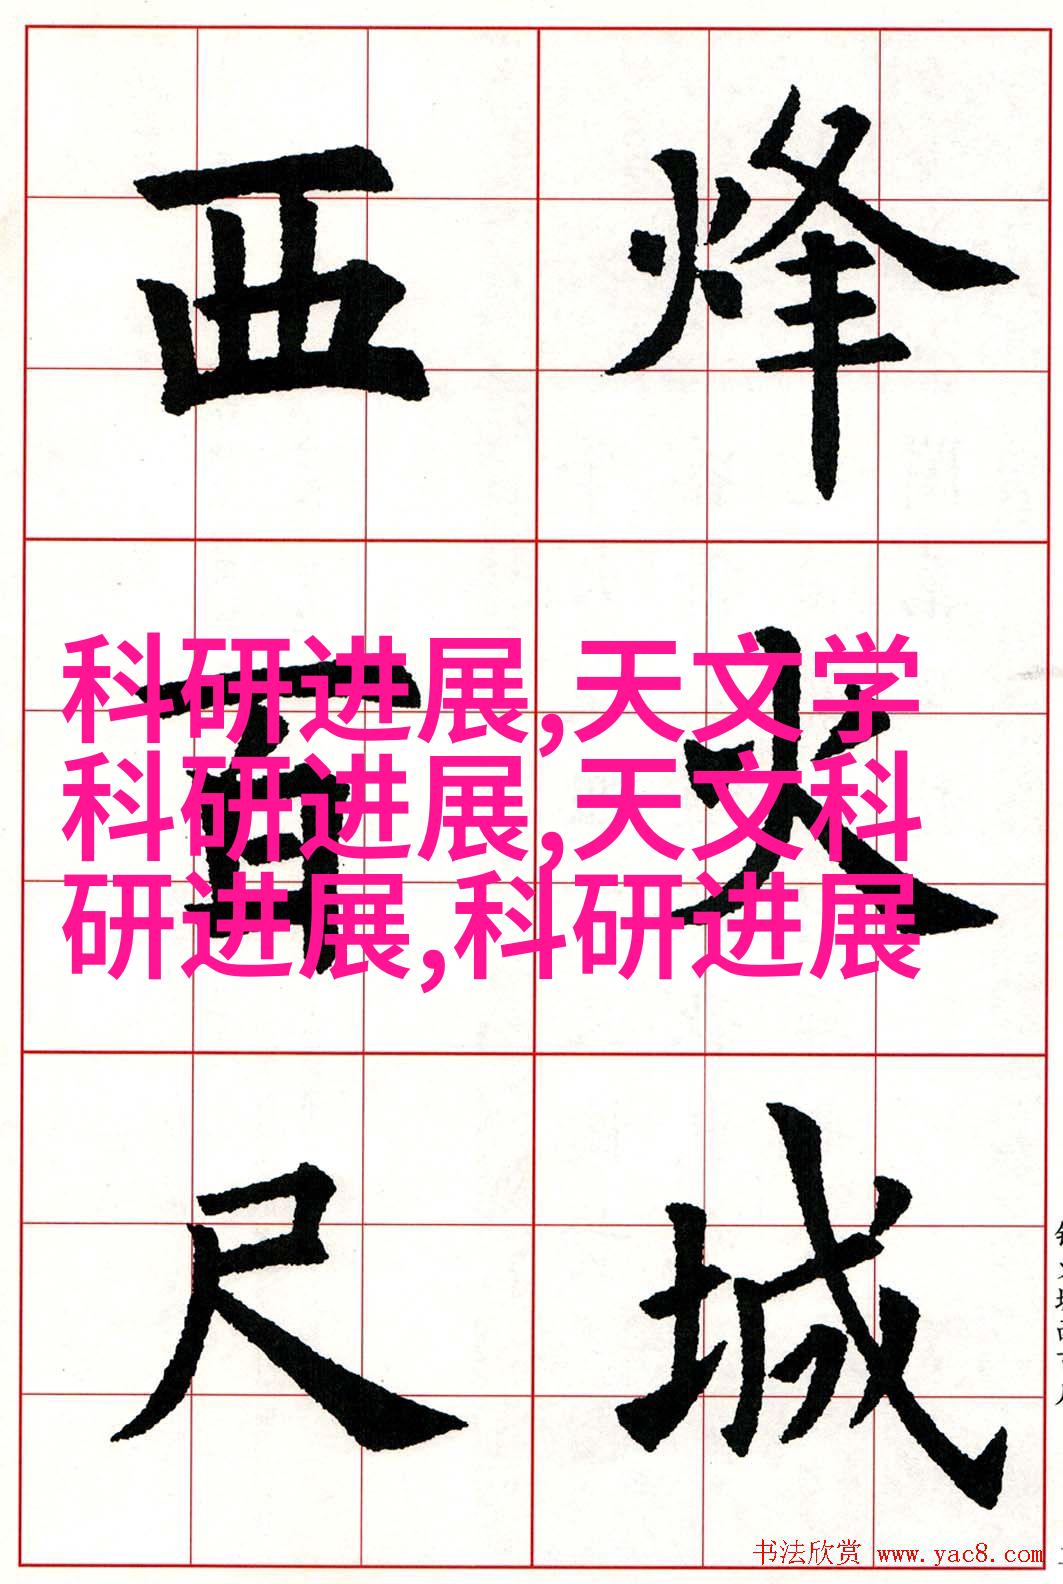 烽火城
西百尺
科研进展,天文学
科研进展,天文科
研进展,科研进展
书法欣赏 www.yac8.com